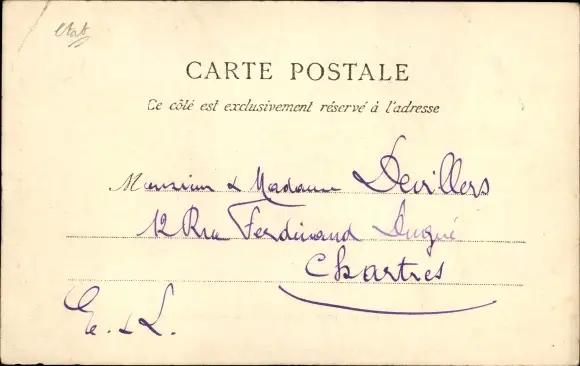 etab
CARTE POSTALE
Ce côté est exclusivement réservé à l'adresse
Monsieur & Madame Devillers
12 Rue Ferdinand Dugué
Chartres
E. & L.